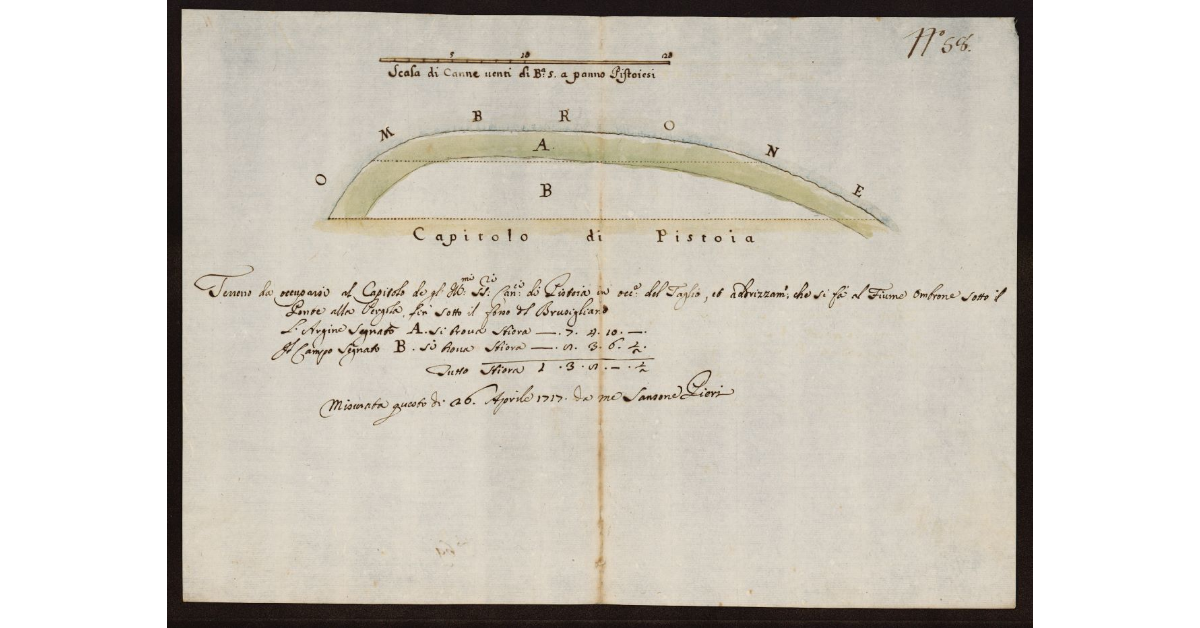 N° 58.
5 10 20
Scala di Canne uenti di B.ª 5. a panno Pistoiesi
O M B R O N E
A
B
Capitolo di Pistoia
Terreno da occuparsi al Capitolo de gl' Ill.mi SS.ri Can.ci di Pistoia in occ.e del Taglio, et addirizzam.o che si fà al Fiume Ombrone sotto il
Ponte alla Pergola, sin sotto il del Brusigliano
L'Argine Segnato A. si troua Stiora —. 7. 4. 10. —.
Il Campo Segnato B. si troua Stiora —. 3. 6. ½.
Tutto Stiora 1. 3. — . ½
Misurata questo dì 26. Aprile 1717. da me Sansone Pieri